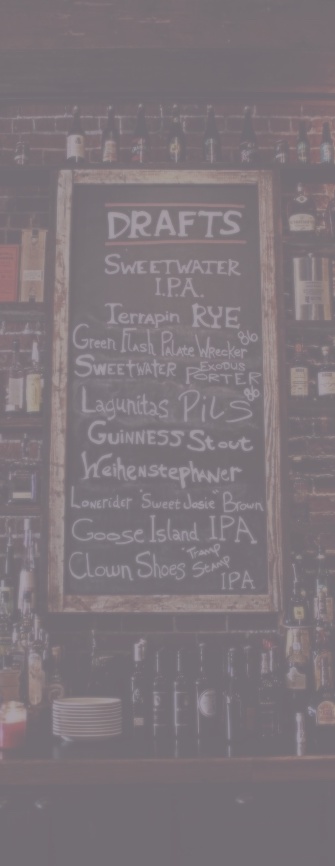 DRAFTS
SWEETWATER
I.P.A.
Terrapin RYE
Green Flash Palate Wrecker $10
SWEETWATER EXODUS PORTER
Lagunitas PILS
GUINNESS Stout
Weihenstephaner
Lonerider "Sweet Josie" Brown
Goose Island IPA
Clown Shoes "Tramp Stamp"
IPA